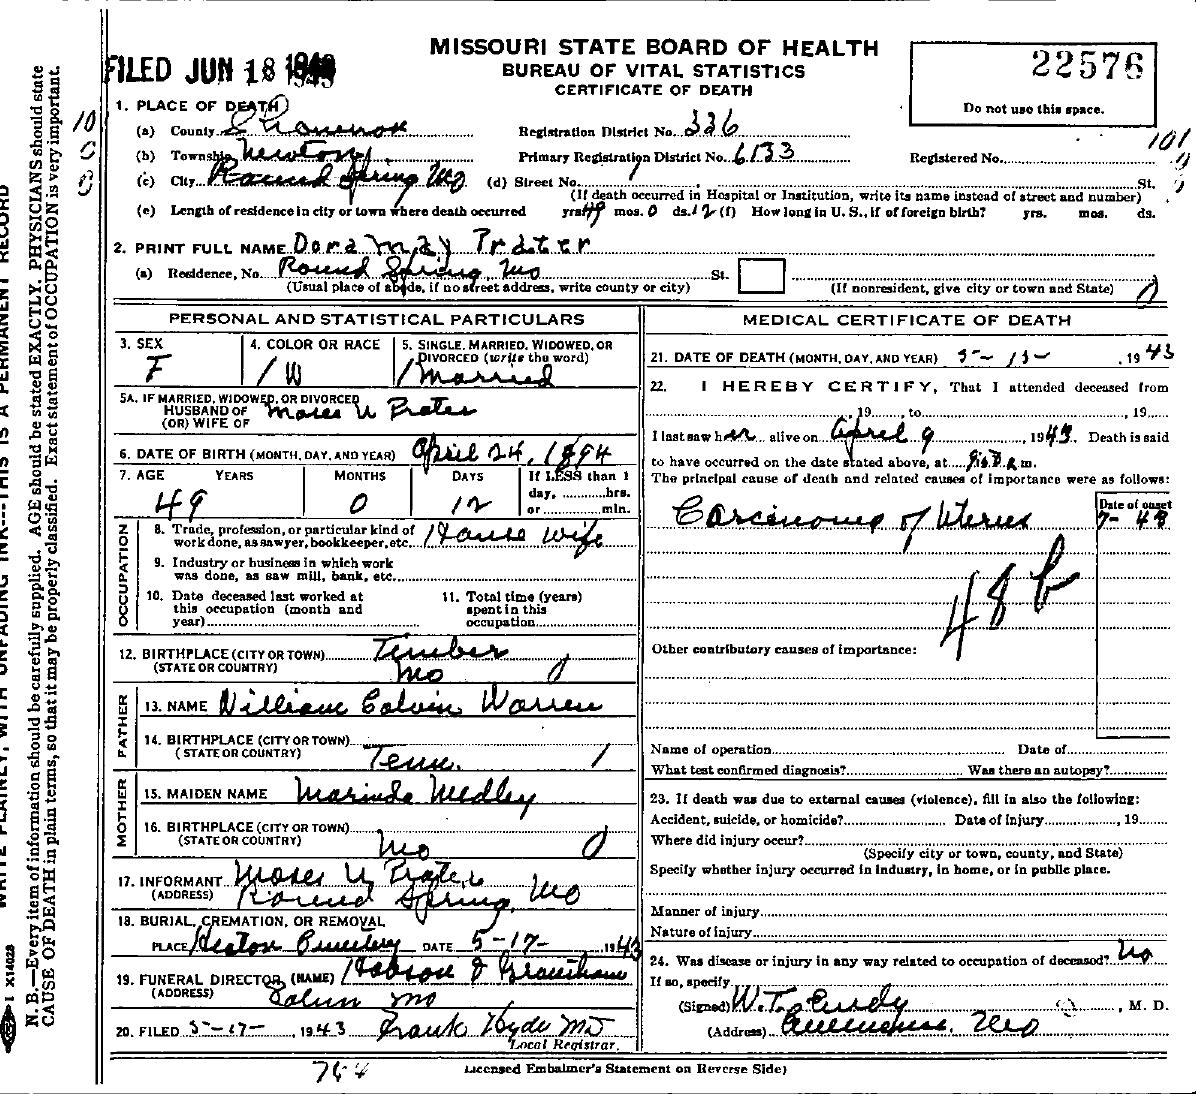 FILED JUN 18 1943
MISSOURI STATE BOARD OF HEALTH
BUREAU OF VITAL STATISTICS
CERTIFICATE OF DEATH
22576
Do not use this space.
1. PLACE OF DEATH
(a) County Shannon
Registration District No. 336
(b) Township Newton
Primary Registration District No. 6133
Registered No.
(c) City Round Spring Mo (d) Street No. St.
(If death occurred in Hospital or Institution, write its name instead of street and number)
(e) Length of residence in city or town where death occurred yrs. 49 mos. 0 ds. 12 (f) How long in U. S., if of foreign birth? yrs. mos. ds.
2. PRINT FULL NAME Dora May Prater
(a) Residence, No. Round Spring, Mo St.
(Usual place of abode, if no street address, write county or city) (If nonresident, give city or town and State)
PERSONAL AND STATISTICAL PARTICULARS
3. SEX F
4. COLOR OR RACE W
5. SINGLE, MARRIED, WIDOWED, OR
DIVORCED (write the word)
Married
5A. IF MARRIED, WIDOWED, OR DIVORCED
HUSBAND OF Moses U Prater
(OR) WIFE OF
6. DATE OF BIRTH (MONTH, DAY, AND YEAR) April 24, 1894
7. AGE YEARS MONTHS DAYS If LESS than 1
day, hrs.
or min.
49 0 12
OCCUPATION
8. Trade, profession, or particular kind of
work done, as sawyer, bookkeeper, etc. House wife
9. Industry or business in which work
was done, as saw mill, bank, etc.
10. Date deceased last worked at
this occupation (month and
year)
11. Total time (years)
spent in this
occupation
12. BIRTHPLACE (CITY OR TOWN) Timber
(STATE OR COUNTRY) Mo
FATHER
13. NAME William Calvin Warren
14. BIRTHPLACE (CITY OR TOWN)
(STATE OR COUNTRY) Tenn.
MOTHER
15. MAIDEN NAME Marinda Medley
16. BIRTHPLACE (CITY OR TOWN)
(STATE OR COUNTRY) Mo
17. INFORMANT Moses U Prater
(ADDRESS) Round Spring, Mo
18. BURIAL, CREMATION, OR REMOVAL
PLACE Cemetery DATE 5-17- 1943
19. FUNERAL DIRECTOR (NAME)
(ADDRESS) Salem Mo
20. FILED 5-17-, 1943 Frank Hyde MD
Local Registrar.
MEDICAL CERTIFICATE OF DEATH
21. DATE OF DEATH (MONTH, DAY, AND YEAR) 5-15-, 1943
22. I HEREBY CERTIFY, That I attended deceased from
, 19 , to , 19
I last saw her alive on April 9, 1943. Death is said
to have occurred on the date stated above, at m.
The principal cause of death and related causes of importance were as follows:
Date of onset
Carcinoma of Uterus
48b
Other contributory causes of importance:
Name of operation Date of
What test confirmed diagnosis? Was there an autopsy?
23. If death was due to external causes (violence), fill in also the following:
Accident, suicide, or homicide? Date of injury , 19
Where did injury occur?
(Specify city or town, county, and State)
Specify whether injury occurred in industry, in home, or in public place.
Manner of injury
Nature of injury
24. Was disease or injury in any way related to occupation of deceased? No
If so, specify
(Signed) W.T. Eudy, M. D.
(Address) Eminence, Mo
Licensed Embalmer's Statement on Reverse Side)
WRITE PLAINLY, WITH UNFADING INK---THIS IS A PERMANENT RECORD
N. B.—Every item of information should be carefully supplied. AGE should be stated EXACTLY. PHYSICIANS should state
CAUSE OF DEATH in plain terms, so that it may be properly classified. Exact statement of OCCUPATION is very important.
I X14028